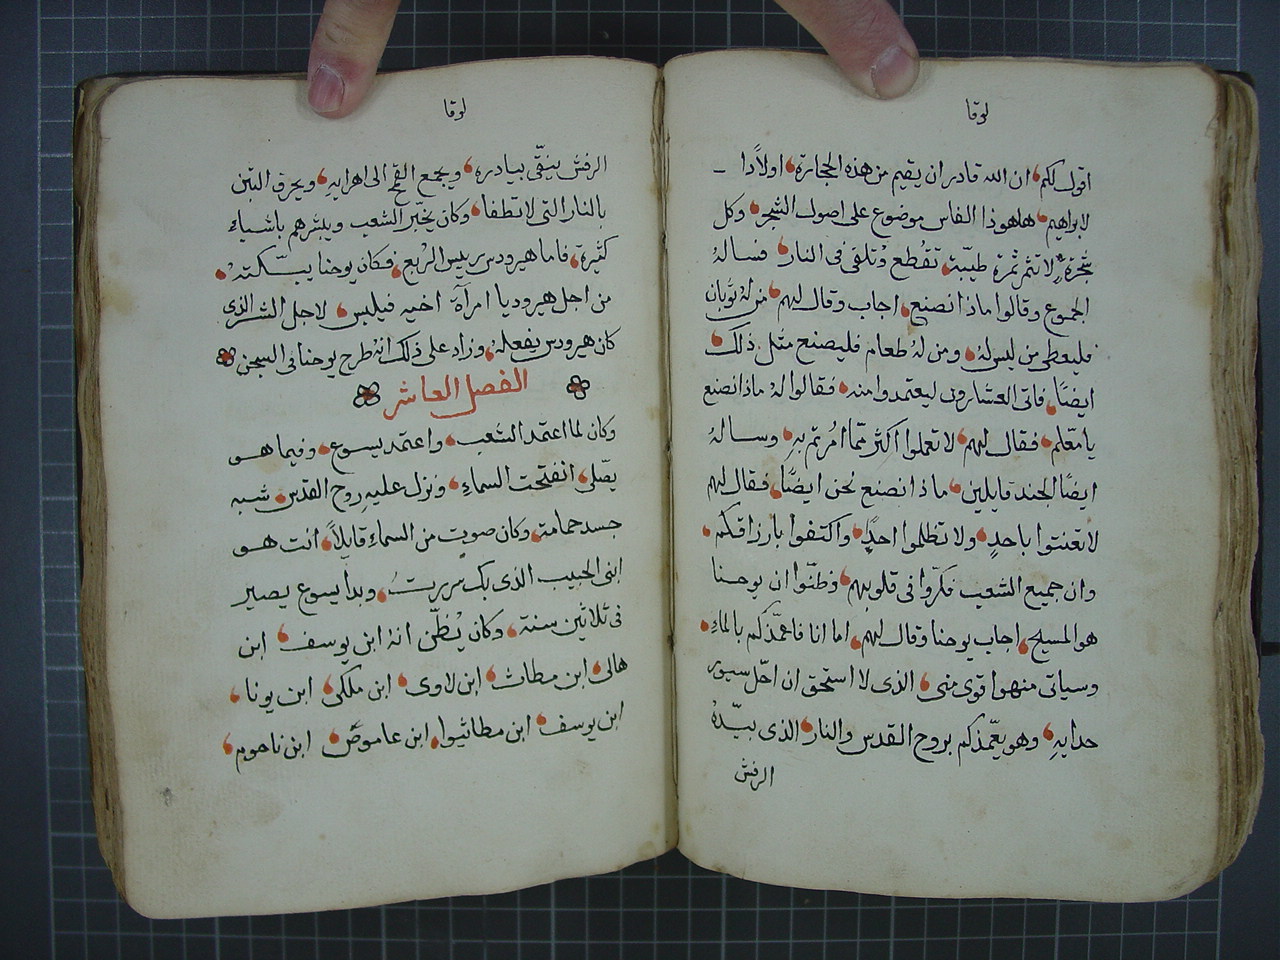 لوقا
اقول لكم، ان الله قادر ان يقيم من هذه الحجارة، اولادًا
لابراهيم، هاهوذا الفاس موضوع على اصول الشجر، وكل
شجرة لا تثمر ثمرة طيبة، تقطع وتلقى فى النار، فساله
الجموع وقالوا ماذا نصنع، اجاب وقال لهم، من له ثوبان
فليعطى من ليس له، ومن له طعام فليصنع مثل ذلك،
ايضًا، فاتى العشارون ليعتمدوا منه، فقالوا له ماذا نصنع
يا معلم، فقال لهم، لا تعملوا اكثر مما امرتم به، وساله
ايضًا الجند قايلين، ماذا نصنع نحن ايضًا، فقال لهم
لا تعنتوا باحدٍ، ولا تظلموا احدًا، واكتفوا بارزاقكم،
وان جميع الشعب فكروا فى قلوبهم، وظنوا ان يوحنا
هو المسيح، اجاب يوحنا وقال لهم، اما انا فاعمّذكم بالماءِ،
وسياتى من هو اقوى منى، الذى لا استحق ان احلّ سيور
حدايهِ، وهو يعمّذكم بروح القدس والنار، الذى بيدهُ
الرفش
لوقا
الرفش ينقّى بيادره، ويجمع القمح الى اهرايه، ويحرق التبن
بالنار التى لا تطفا، وكان يخبّر الشعب ويبشرهم باشياء
كثيرة، فاما هيرودس رييس الربع، فكان يوحنا يبكّته،
من اجل هيروديا امرآة اخيه فيلبس، لاجل الشر الذى
كان هيرودس يفعله، وزاد على ذلك انهُ طرح يوحنا فى السجن
الفصل العاشر
وكان لما اعتمد الشعب، واعتمد يسوع، وفيما هو
يصّلى، انفتحت السماءِ، ونزل عليهِ روح القدس، شبه
جسد حمامة، وكان صوت من السماءِ قايلاً، انت هو
ابنى الحبيب الذى بك سررت، وبدأ يسوع يصير
فى ثلاثين سنة، وكان يُظنّ انهُ ابن يوسف، ابن
هالى، ابن مطاث، ابن لاوى، ابن ملكى، ابن يونا،
ابن يوسف، ابن مطاثيوا، ابن عاموص، ابن ناحوم،